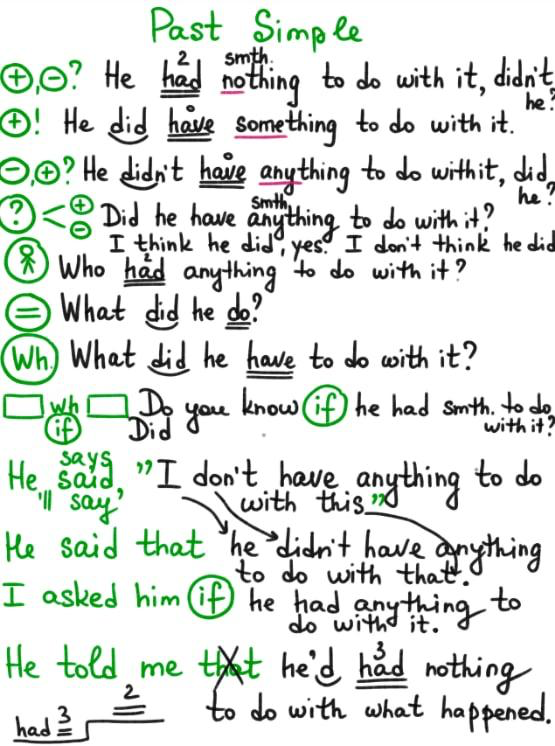 Past Simple
2 smth.
+,-? He had nothing to do with it, didn't
he?
+! He did have something to do with it.
-,+? He didn't have anything to do withit, did
he?
? < + - Did he have anything to do with it?
smth.
I think he did, yes. I don't think he did
2
Who had anything to do with it?
= What did he do?
Wh. What did he have to do with it?
wh Do you know if he had smth. to do
if Did with it?
says
He said, "I don't have anything to do
'll say, with this"
He said that he didn't have anything
to do with that.
I asked him if he had anything to
do with it.
3
He told me that he'd had nothing
2
had 3 to do with what happened.